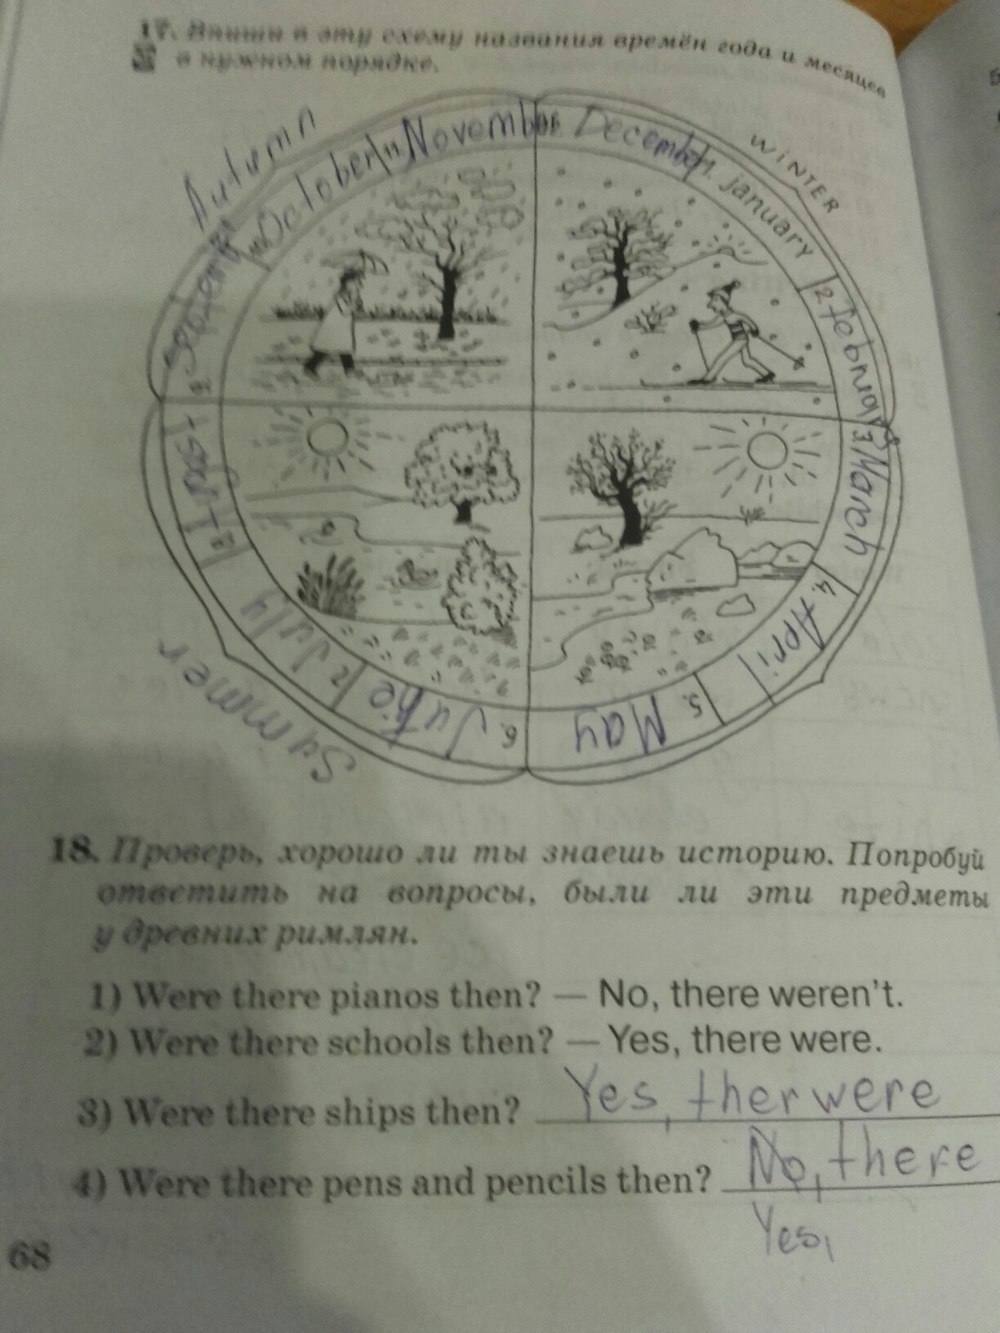 17. Впиши в эту схему названия времён года и месяцев
в нужном порядке.
Autumn
WiNTER
October
November
December
1. january
2 february
3 March
4. April
5. May
6. June
July
Summer
18. Проверь, хорошо ли ты знаешь историю. Попробуй
ответить на вопросы, были ли эти предметы
у древних римлян.
1) Were there pianos then? — No, there weren't.
2) Were there schools then? — Yes, there were.
3) Were there ships then? Yes, ther were
4) Were there pens and pencils then? No, there
Yes,
68